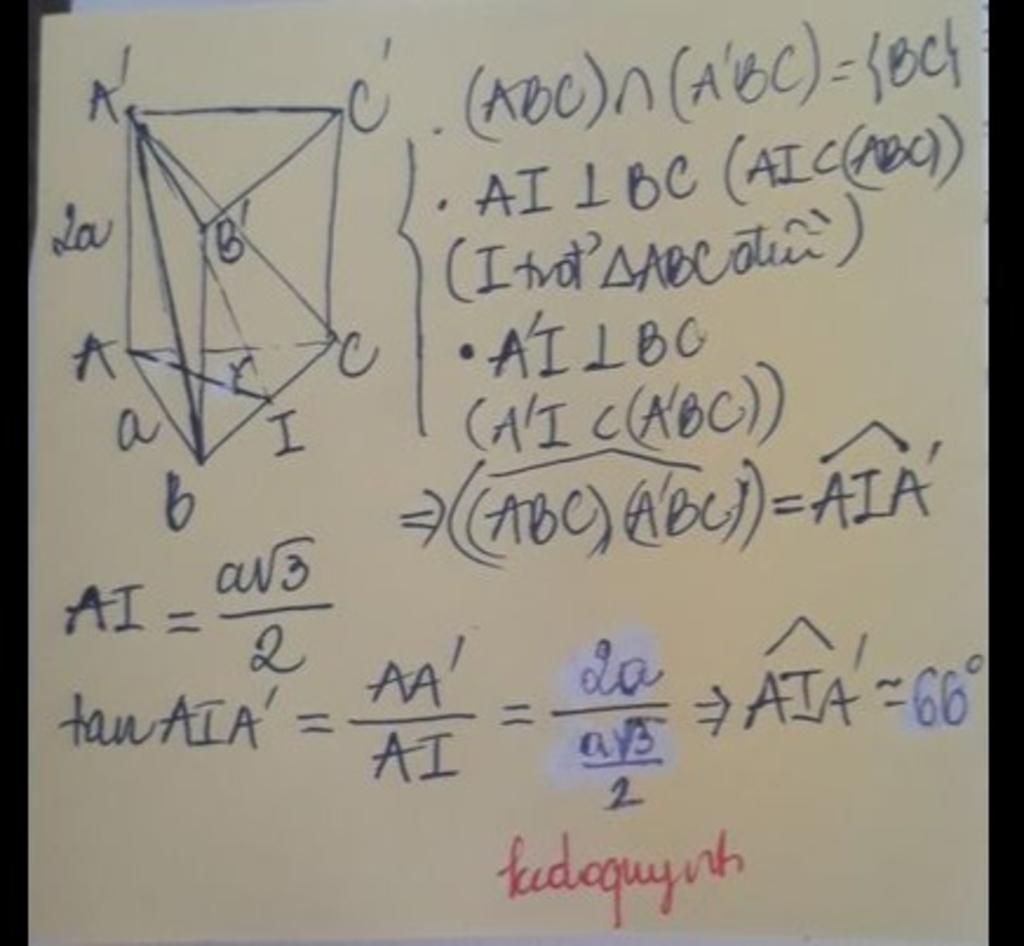 A'
C'
2a
B'
A
C
r
a
I
B
. (ABC)∩(A'BC)={BC}
. AI⊥BC (AI⊂(ABC))
(I trđ' ΔABC đều)
• A'I⊥BC
(A'I⊂(A'BC))
⇒((ABC),(A'BC))=AIA'
AI = a√3/2
tan AIA' = AA'/AI = 2a/(a√3/2) ⇒ AIA' ≃ 66°